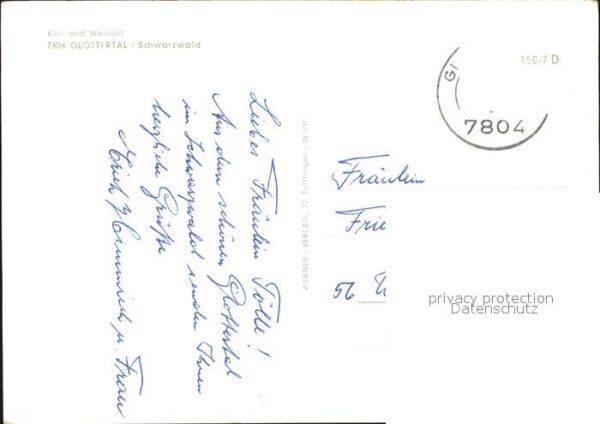 Kur- und Weinort
7804 GLOTTERTAL / Schwarzwald
150/7 D
7804
Liebes Fräulein Tölle!
Aus dem schönen Glottertal
im Schwarzwald senden Ihnen
herzliche Grüße
Erich u. Frau
Fräulein
Frie
56
privacy protection
Datenschutz